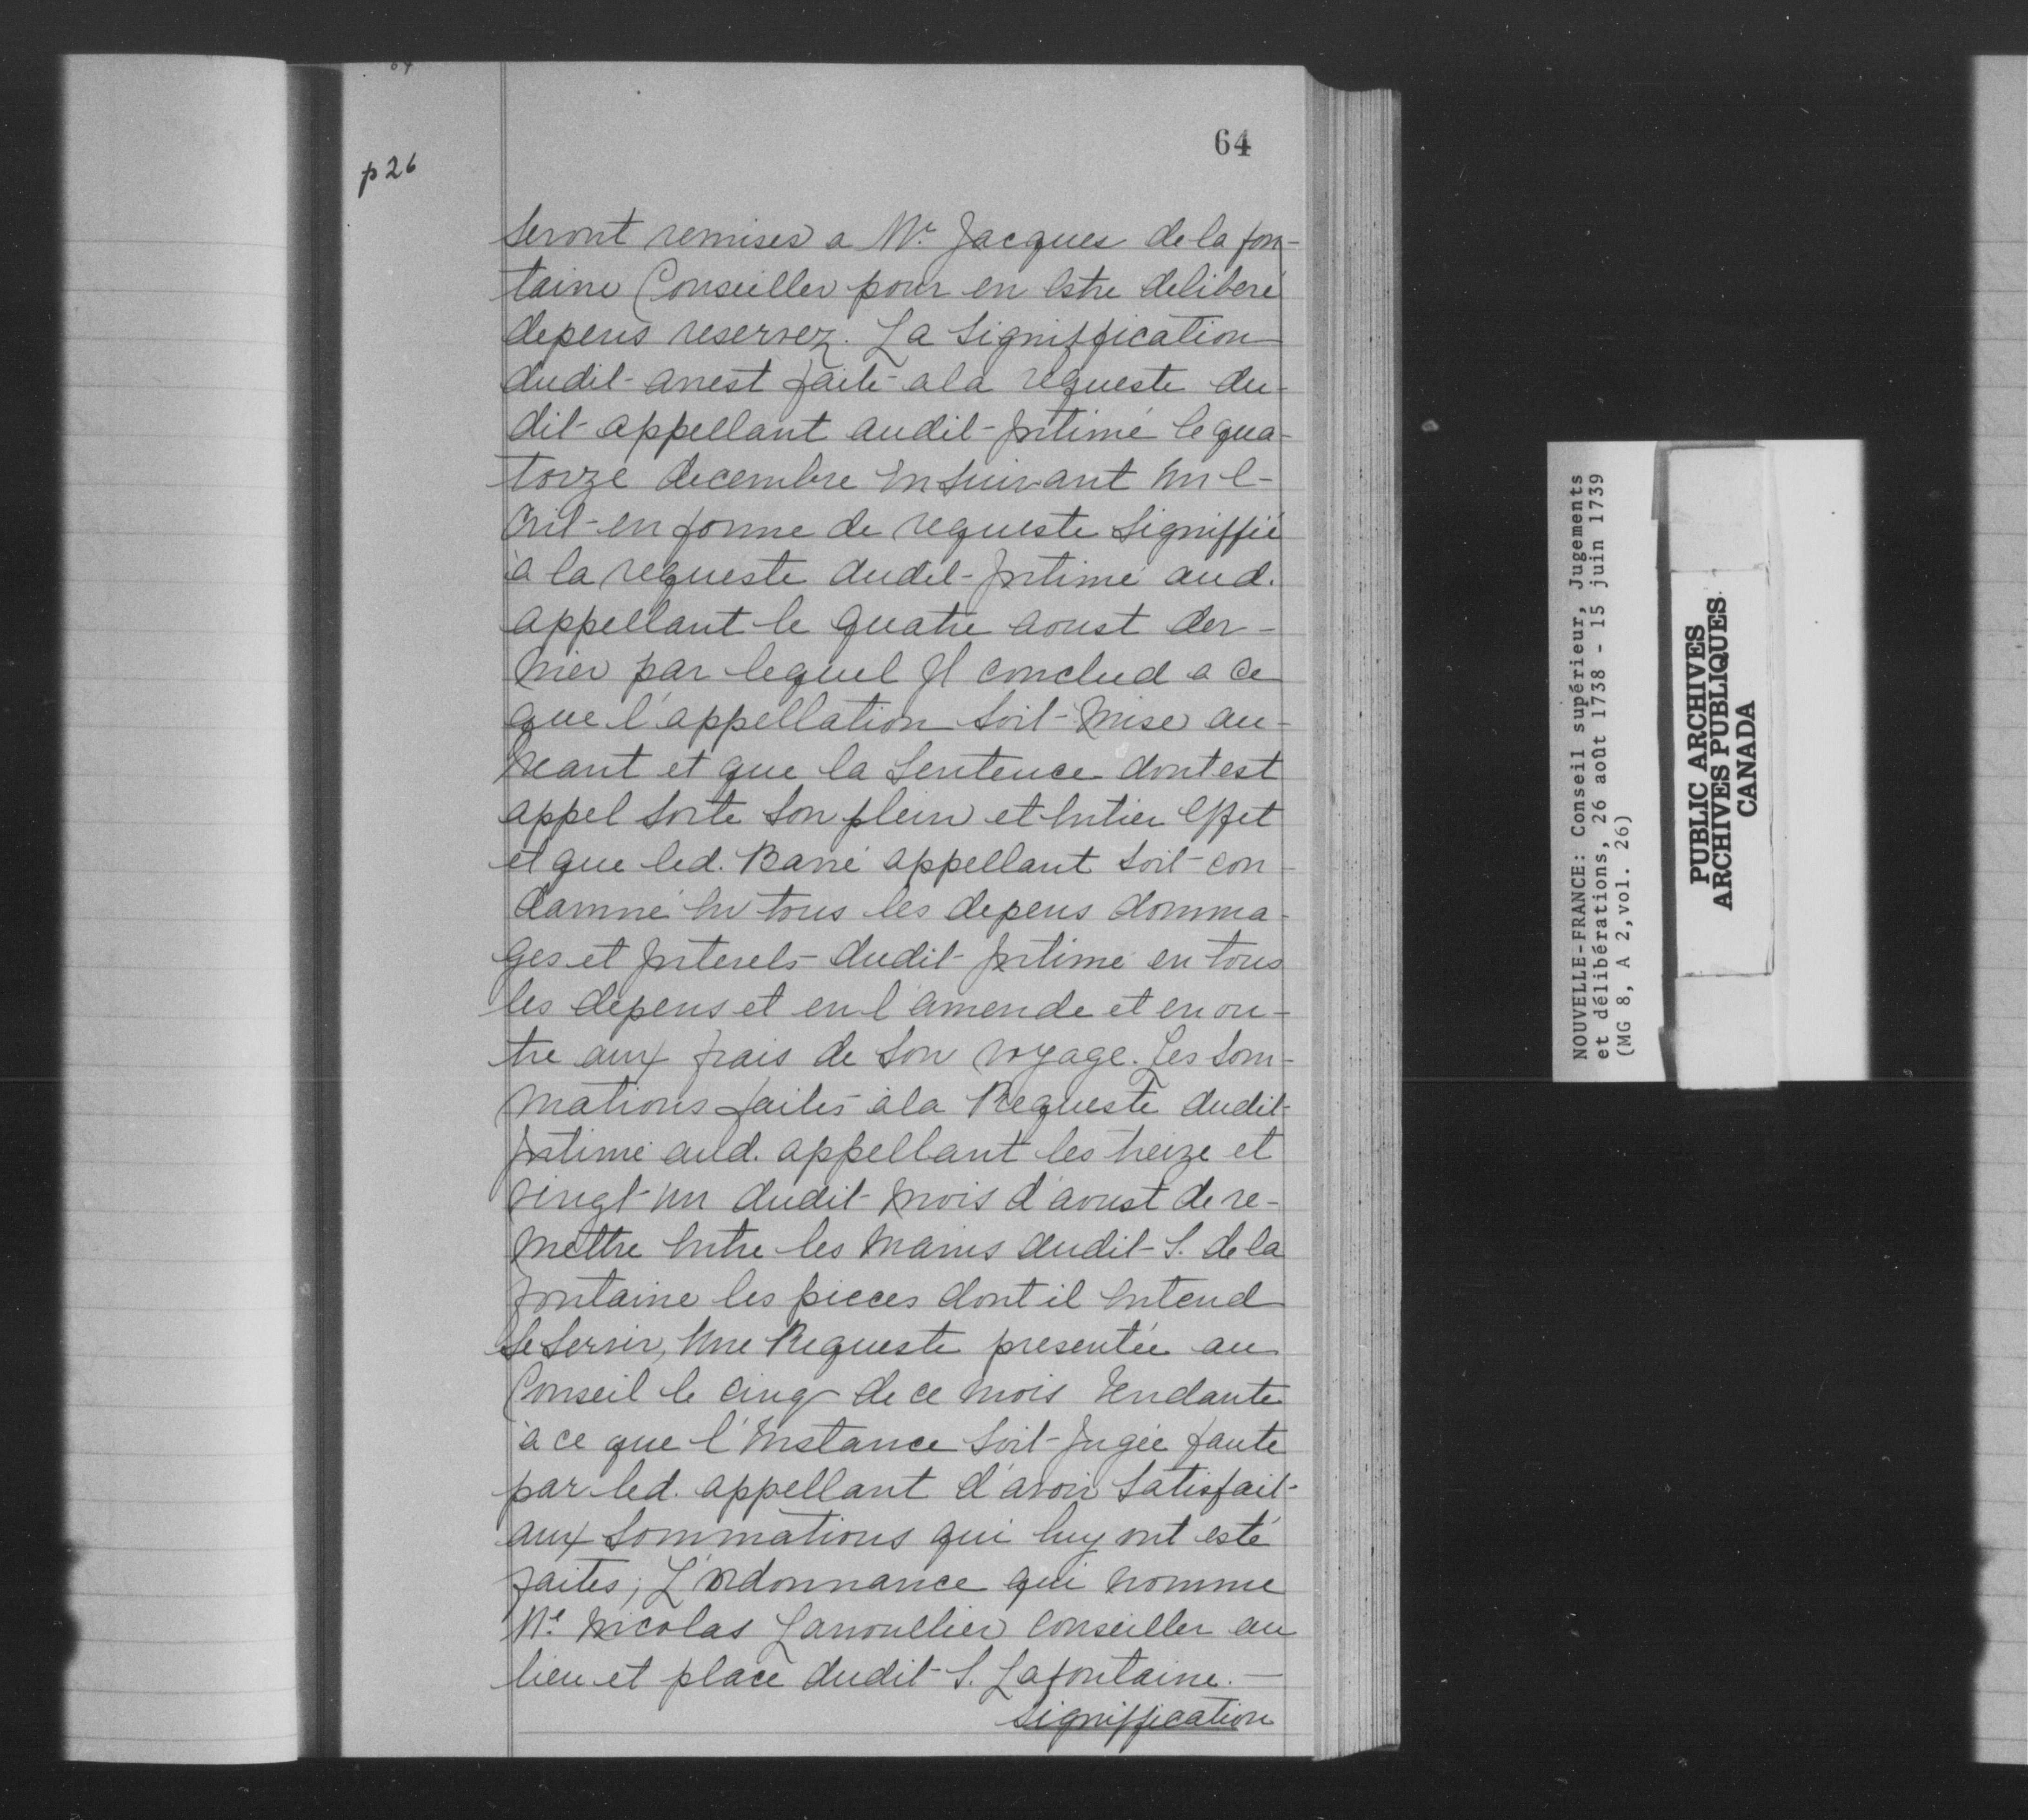 64
p 26
Seront remises a Mr. Jacques de la fon-
taine Conseiller pour en Estre deliberé
depens reservez. La Signiffication
dudit arrest faite a la requeste du-
dit appellant audit Intimé le qua-
torze decembre Ensuivant Un E-
crit en forme de requeste Signiffié
à la requeste dudit Intimé aud.
appellant le quatre aoust der-
nier par lequel Il conclud a ce
que l'appellation Soit Mise au
Neant et que la Sentence dont est
appel Sorte Son plein et Entier Effet
et que led. Barré appellant Soit con-
damné En tous les depens domma-
ges et Interets dudit Intimé en tous
les depens et en l'amende et en ou-
tre aux frais de Son Voyage. Les Som-
mations faites à la Requeste dudit
Intimé aud. appellant les treize et
Vingt Un dudit Mois d'aoust de re-
mettre Entre les Mains dudit S. de la
fontaine les pieces dont il Entend
Se Servir, Une Requeste presentée au
Conseil le cinq de ce Mois Tendante
à ce que l'Instance Soit Jugée faute
par led. appellant d'avoir Satisfait
aux Sommations qui luy ont esté
faites; L'ordonnance qui nomme
Me. Nicolas Lanoullier Conseiller au
lieu et place dudit S. Lafontaine.
Signiffication
NOUVELLE-FRANCE: Conseil supérieur, Jugements
et délibérations, 26 août 1738 - 15 juin 1739
(MG 8, A 2, vol. 26)
PUBLIC ARCHIVES
ARCHIVES PUBLIQUES
CANADA